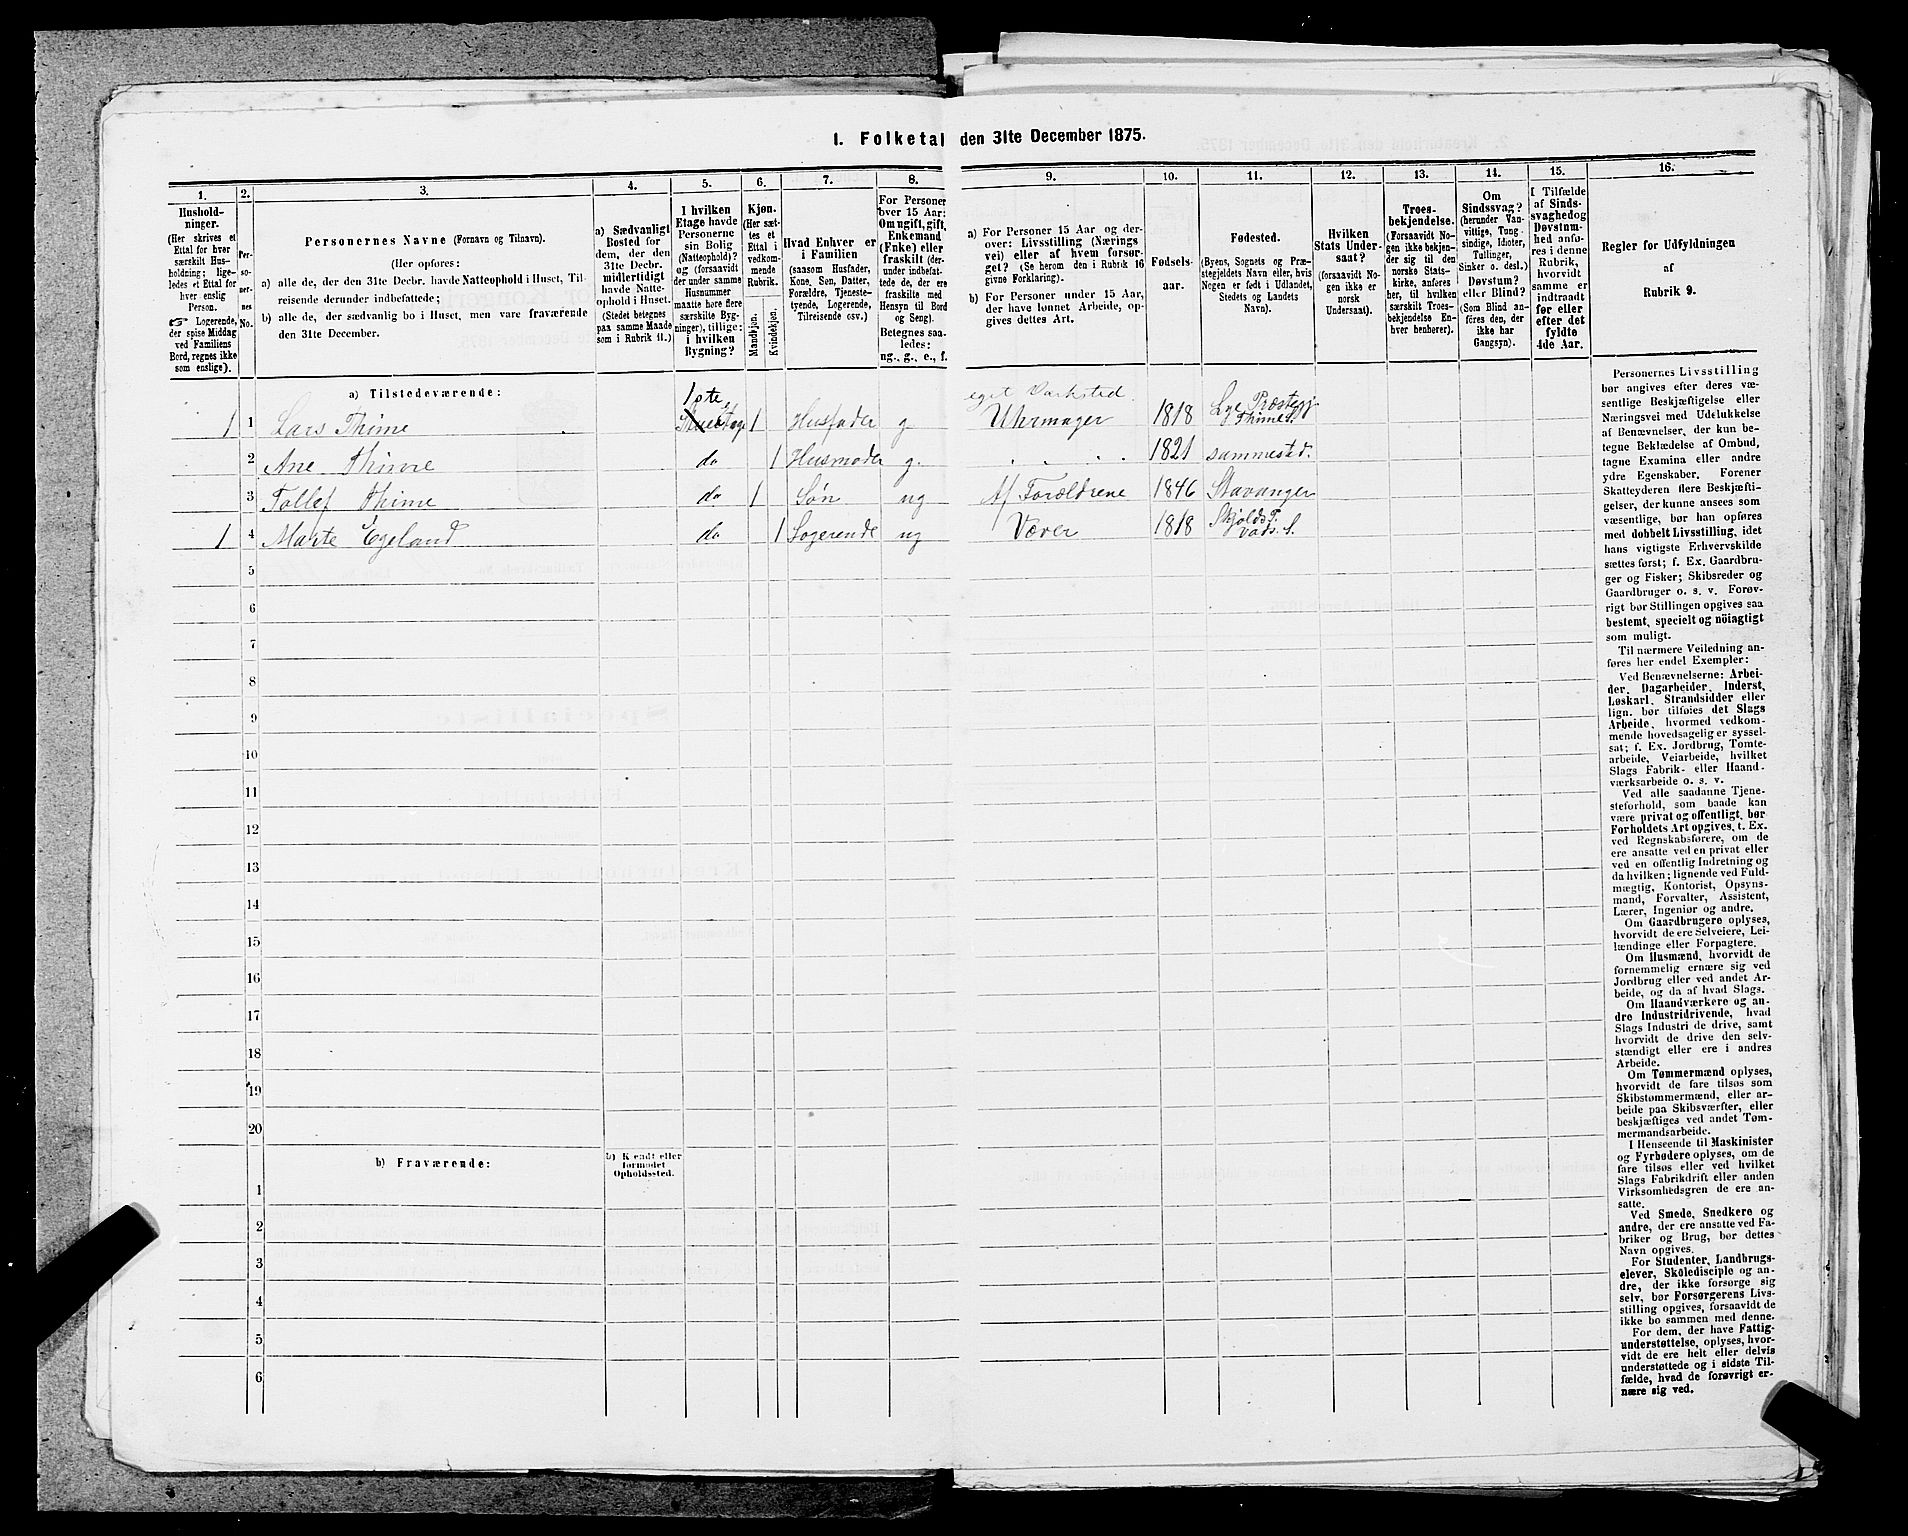 1. Folketal den 31te December 1875.
1. 2. 3. 4. 5. 6. 7. 8. 9. 10. 11. 12. 13. 14. 15. 16.
Hushold-
ninger.
(Her skrives et
Ettal for hver
særskilt Hus-
holdning; lige-
ledes et Ettal for
hver enslig
Person.
☞ Logerende,
der spise Middag
ved Familiens
Bord, regnes ikke
som enslige).
Per-
so-
ner-
nes
No.
Personernes Navne (Fornavn og Tilnavn).
(Her opføres:
a) alle de, der den 31te Decbr. havde Natteophold i Huset, Til-
reisende derunder indbefattede;
b) alle de, der sædvanlig bo i Huset, men vare fraværende
den 31te December.
a) Sædvanligt
Bosted for
dem, der den
31te Decbr.
midlertidigt
havde Natte-
ophold i Huset.
(Stedet betegnes
paa samme Maade
som i Rubrik 11.)
I hvilken
Etage havde
Personerne
sin Bolig
(Natteophold)?
og (forsaavidt
der under samme
Husnummer
maatte høre flere
særskilte Byg-
ninger), tillige:
i hvilken
Bygning?
Kjøn.
(Her sæt-
tes et
Ettal i
vedkom-
mende
Rubrik.
Mandkjøn.
Kvindekjøn.
Hvad Enhver er
i Familien
(saasom Husfader,
Kone, Søn, Datter,
Forældre, Tjeneste-
tyende, Logerende,
Tilreisende osv.)
For Personer
over 15 Aar:
Om ugift, gift,
Enkemand
(Enke) eller
fraskilt (der-
under indbefat-
tede de, der ere
fraskilte med
Hensyn til Bord
og Seng).
Betegnes saa-
ledes:
ug., g., e., f.
a) For Personer 15 Aar og der-
over: Livsstilling (Nærings
vei) eller af hvem forsør-
get? (Se herom den i Rubrik 16
givne Forklaring).
b) For Personer under 15 Aar,
der have lønnet Arbeide, op-
gives dettes Art.
Fødsels-
aar.
Fødested.
(Byens, Sognets og Præ-
stegjeldets Navn eller, hvis
Nogen er født i Udlandet,
Stedets og Landets
Navn).
Hvilken
Stats Under-
saat?
(forsaavidt No-
gen ikke er
norsk
Undersaat).
Troes-
bekjendelse.
(Forsaavidt No-
gen ikke bekjen-
der sig til den
norske Stats-
kirke, anføres
her, til hvilken
særskilt Troes-
bekjendelse En-
hver henhører).
Om
Sindssvag?
(herunder Van-
vittige, Tung-
sindige, Idioter,
Tullinger,
Sinker o. desl.)
Døvstum?
eller Blind?
(Som Blind an-
føres den, der
ikke har
Gangsyn).
I Tilfælde
af Sinds-
svaghed og
Døvstum-
hed anfø-
res i denne
Rubrik,
hvorvidt
samme er
indtraadt
før eller
efter det
fyldte
4de Aar.
Regler for Udfyldningen
af
Rubrik 9.
a) Tilstedeværende:
1ste eget Værksted.
1 1 Lars Thime Etage 1 Husfader g. Uhrmager 1818 Lye Præstegj. Thime S.
2 Ane Thime do 1 Husmoder g. . . . . 1821 sammested.
3 Tollef Thime do 1 Søn ug Af Forældrene 1846 Stavanger
1 4 Marte Egeland do 1 Logerende ug Væver 1818 Skjolds P. Vads S.
5
6
7
8
9
10
11
12
13
14
15
16
17
18
19
20
b) Fraværende: b) Kendt eller
formodet
Opholdssted.
1
2
3
4
5
6
Personernes Livsstilling
bør angives efter deres væ-
sentlige Beskjæftigelse eller
Næringsvei med Udelukkelse
af Benævnelser, der kun be-
tegne Beklædelse af Ombud,
tagne Examina eller andre
ydre Egenskaber. Forener
Skatteyderen flere Beskjæfti-
gelser, der kunne ansees som
væsentlige, bør han opføres
med dobbelt Livsstilling, idet
hans vigtigste Erhvervskilde
sættes først; f. Ex. Gaardbru-
ger og Fisker; Skibsreder og
Gaardbruger o. s. v. Forøv-
rigt bør Stillingen opgives saa
bestemt, specielt og nöiagtigt
som muligt.
Til nærmere Veiledning an-
føres her endel Exempler:
Ved Benævnelserne: Arbei-
der, Dagarbeider, Inderst,
Løskarl, Strandsidder eller
lign. bør tilføies det Slags
Arbeide, hvormed vedkom-
mende hovedsagelig er syssel-
sat; f. Ex. Jordbrug, Tomte-
arbeide, Veiarbeide, hvilket
Slags Fabrik- eller Haand-
værksarbeide o. s. v.
Ved alle saadanne Tjene-
steforhold, som baade kan
være privat og offentligt, bør
Forholdets Art opgives, t. Ex.
ved Regnskabsførere, om de
ere ansatte ved en privat eller
ved en offentlig Indretning og
da hvilken; lignende ved Fuld-
mægtig, Kontorist, Opsyns-
mand, Forvalter, Assistent,
Lærer, Ingeniør og andre.
Om Gaardbrugere oplyses,
hvorvidt de ere Selveiere, Lei-
lændinge eller Forpagtere.
Om Husmænd, hvorvidt de
fornemmelig ernære sig ved
Jordbrug eller ved andet Ar-
beide, og da af hvad Slags.
Om Haandværkere og an-
dre Industridrivende, hvad
Slags Industri de drive, samt
hvorvidt de drive den selv-
stændigt eller ere i andres
Arbeide.
Om Tømmermænd oplyses,
hvorvidt de fare tilsøs som
Skibstømmermænd, eller ar-
beide paa Skibsværfter, eller
beskjæftiges ved andet Tøm-
mermandsarbeide.
I Henseende til Maskinister
og Fyrbødere oplyses, om de
fare tilsøs eller ved hvilket
Slags Fabrikdrift eller anden
Virksomhedsgren de ere an-
satte.
Ved Smede, Snedkere og
andre, der ere ansatte ved Fa-
briker og Brug, bør dettes
Navn opgives.
For Studenter, Landbrugs-
elever, Skoledisciple og an-
dre, der ikke forsørge sig
selv, bør Forsørgerens Livs-
stilling opgives, forsaavidt de
ikke bo sammen med denne.
For dem, der have Fattig-
understøttelse, oplyses, hvor-
vidt de ere helt eller delvis
understøttede og i sidste Til-
fælde, hvad de forøvrigt er-
nære sig ved.